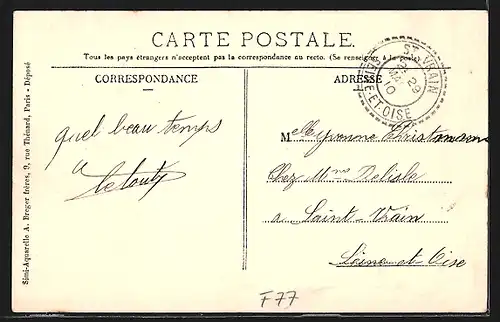 CARTE POSTALE.
Tous les pays étrangers n'acceptent pas la correspondance au recto. (Se renseigner à la poste).
CORRESPONDANCE
ADRESSE
ST VRAIN
29
MAI
10
SEINE-ET-OISE
quel beau temps
a
Melle Yvonne
Chez Mme Delisle
a Saint-Vrain
Seine et Oise
F77
Simi-Aquarelle A. Breger frères, 9, rue Thénard, Paris - Déposé